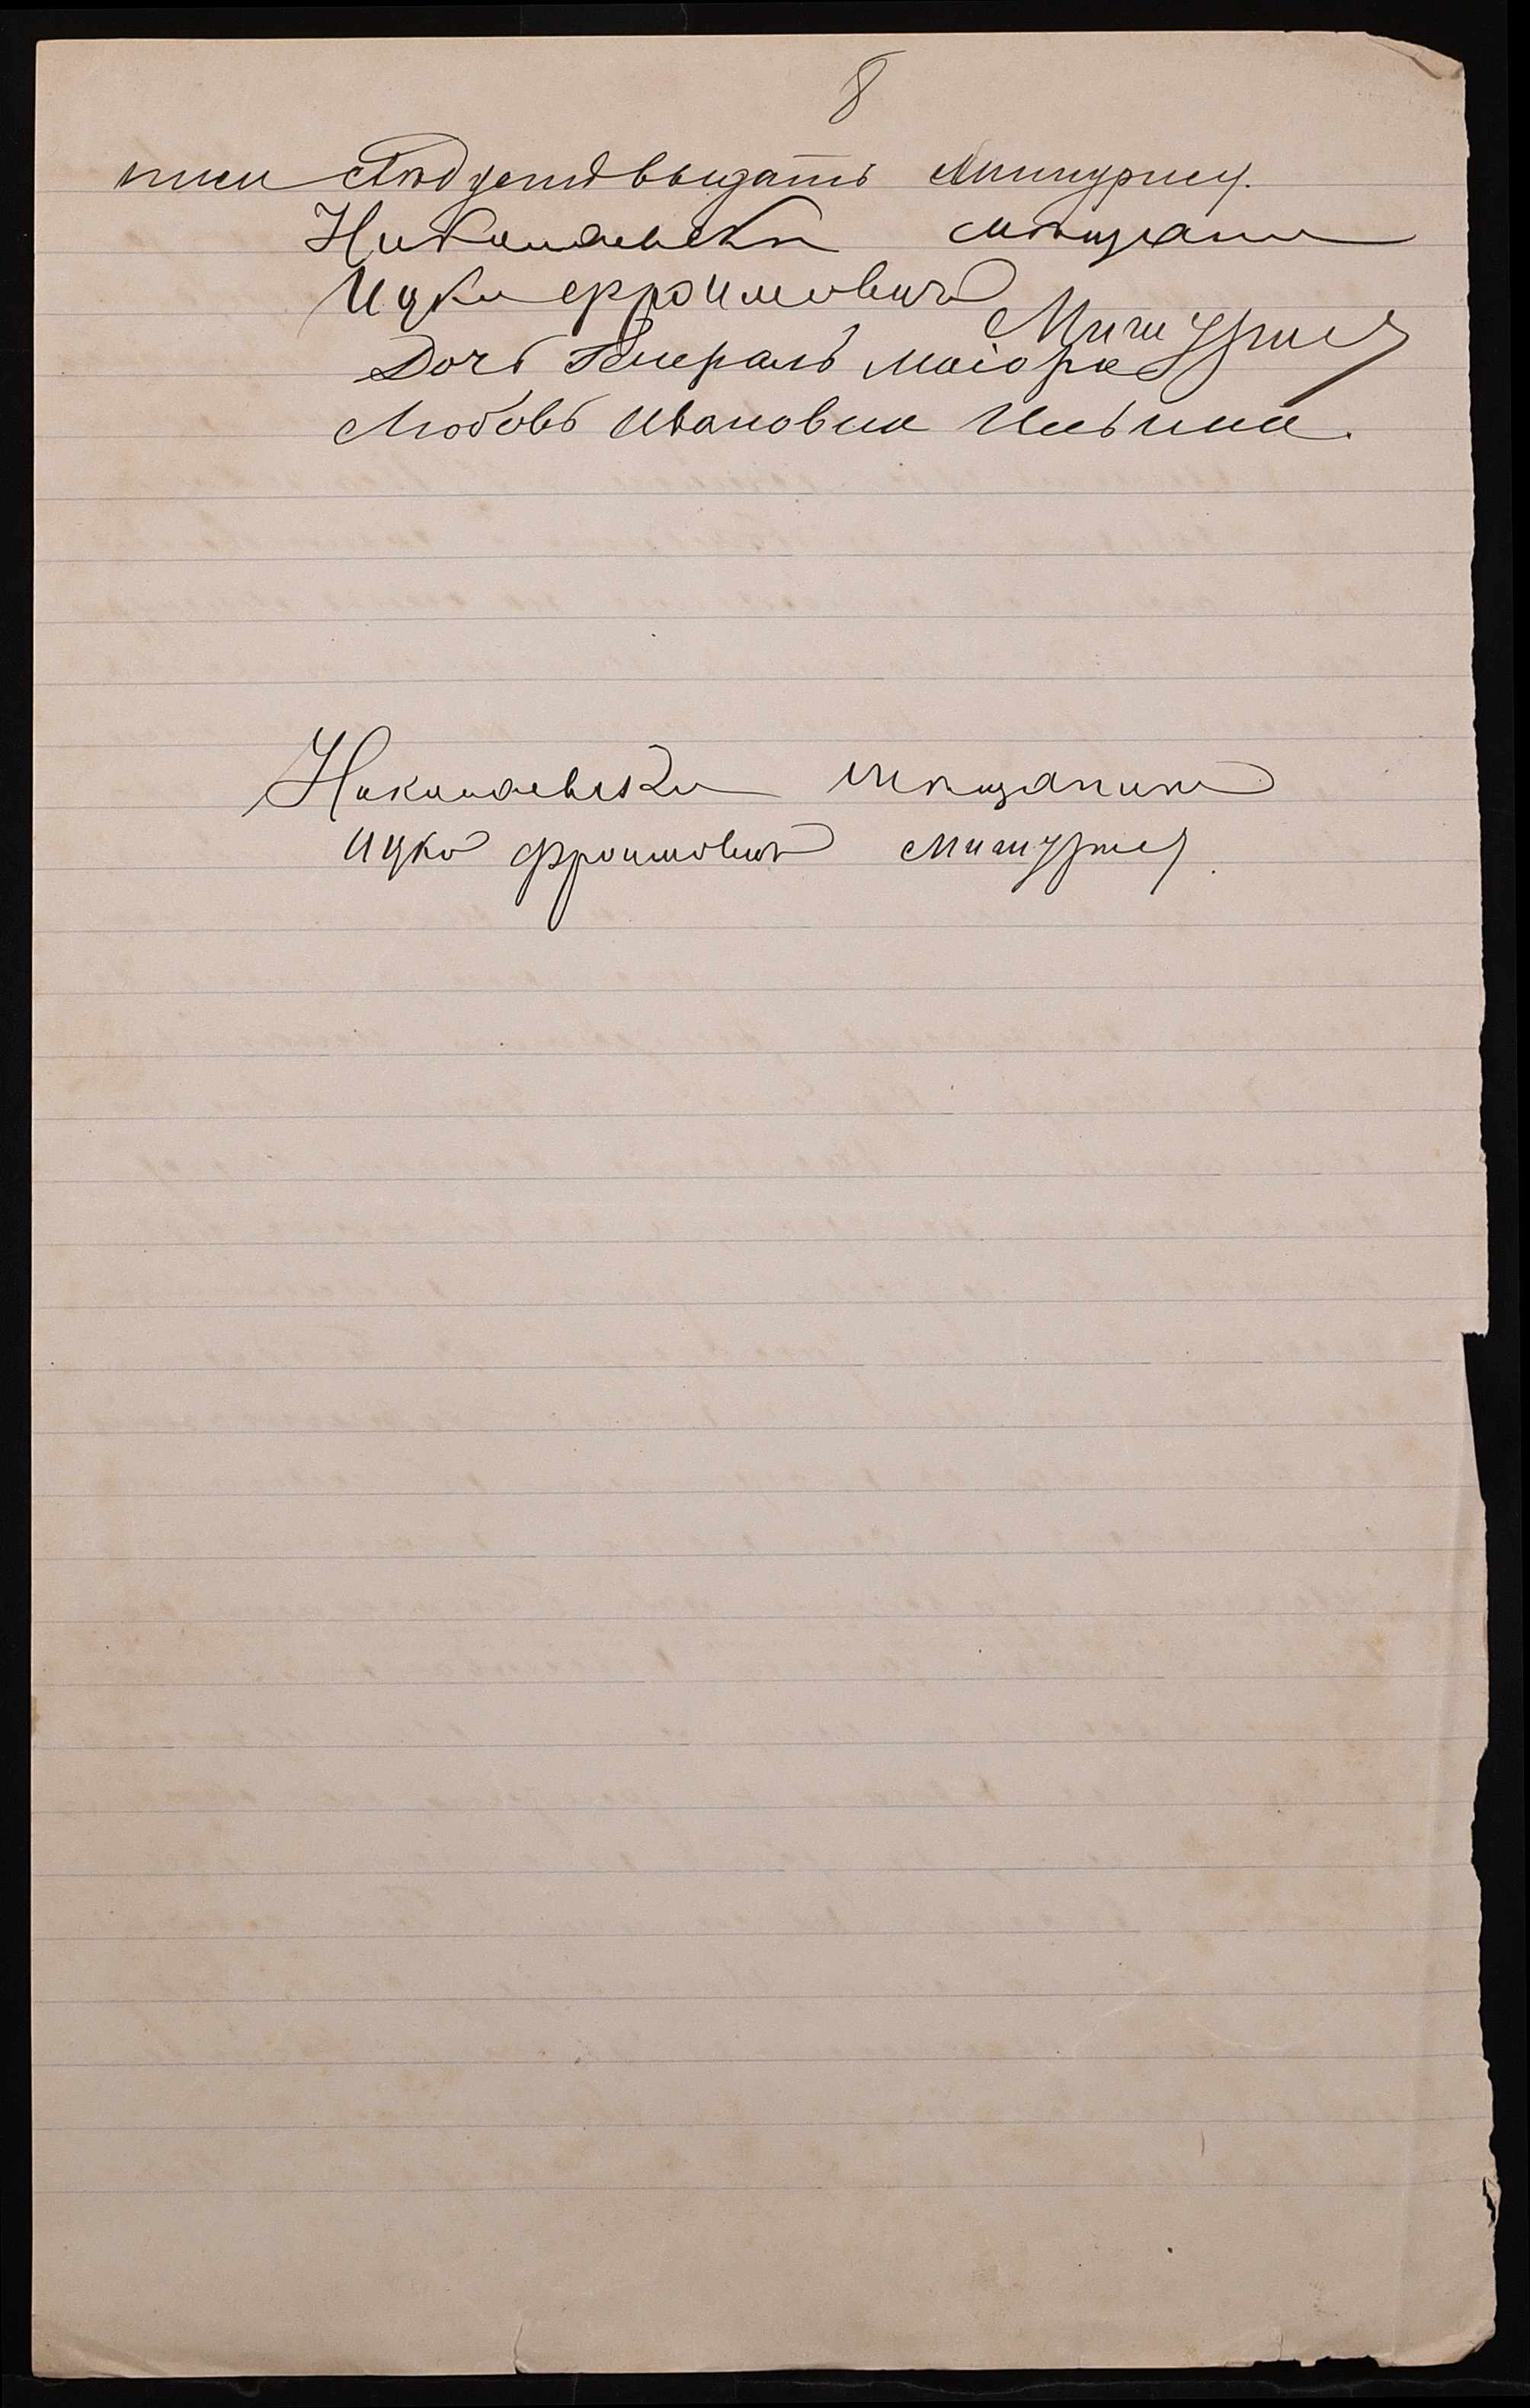 8
писи слѣдуетъ выдать Мишурису.
Николаевски мѣщани
Ицко Фроимовичъ
Мишурисъ
Дочь Генералъ Маіора
Любовь Ивановна Ильина.
Николаевски мѣщанинъ
Ицко Фроимовичъ Мишурисъ.